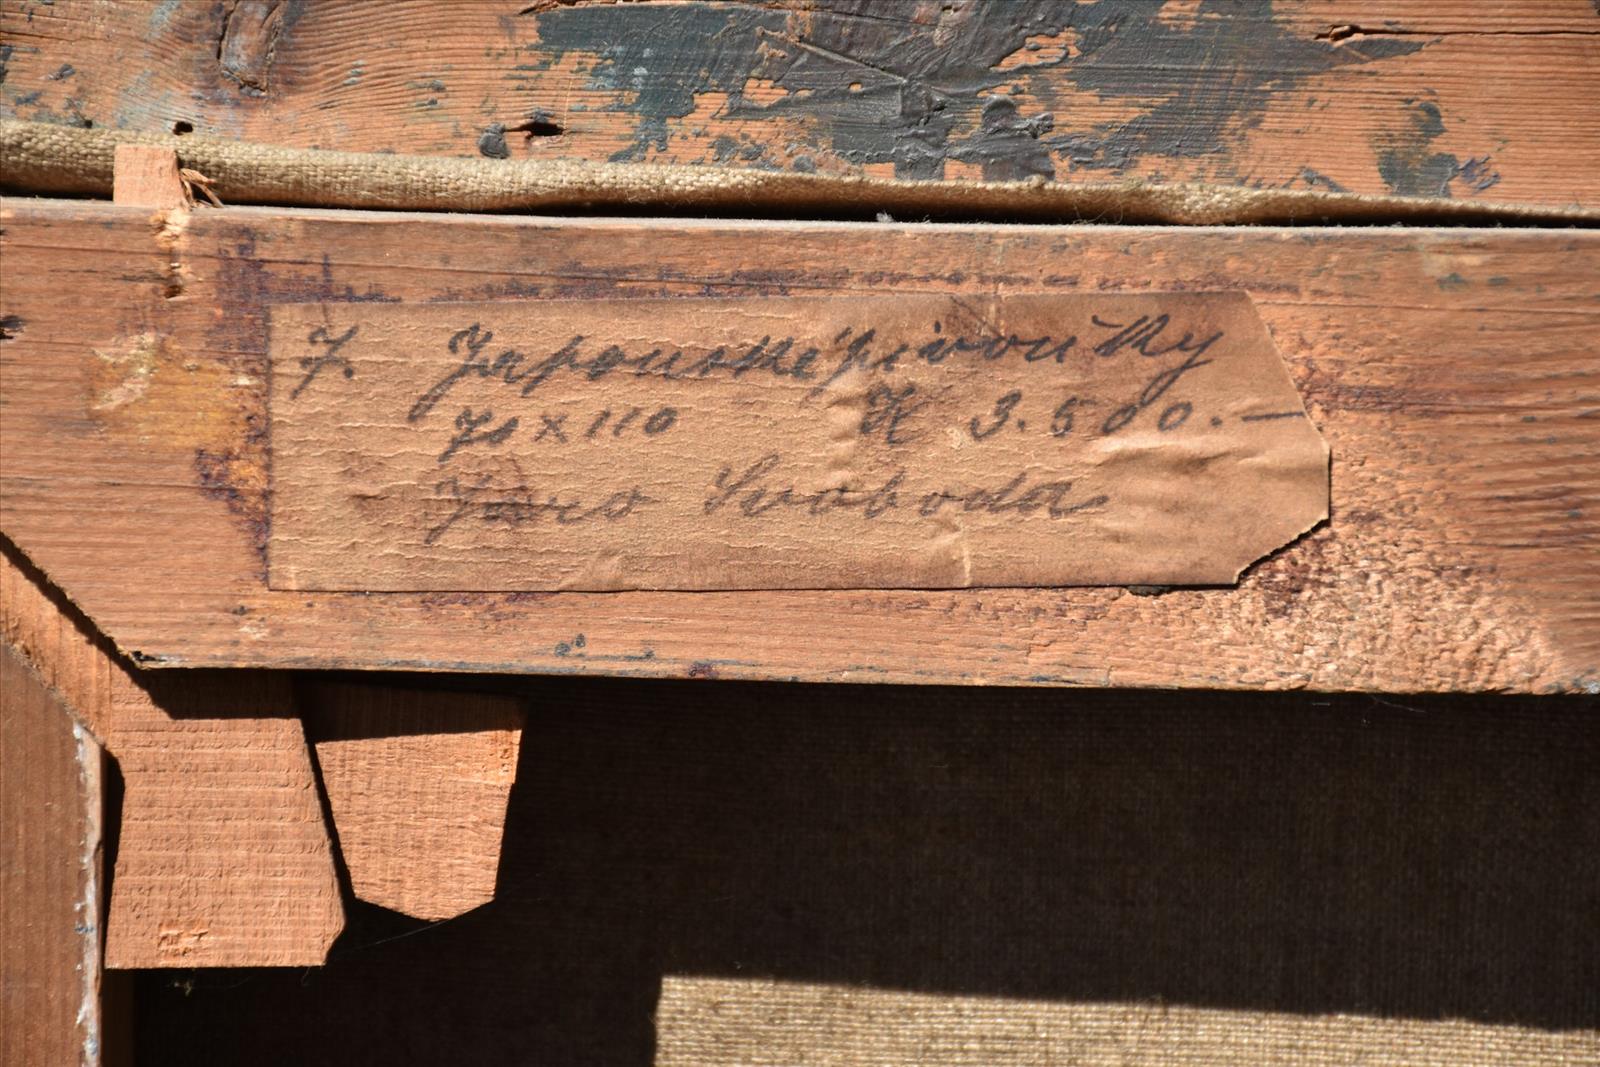 7. Japonské pivoňky
70 x 110 K 3.500.—
Jaro Svoboda